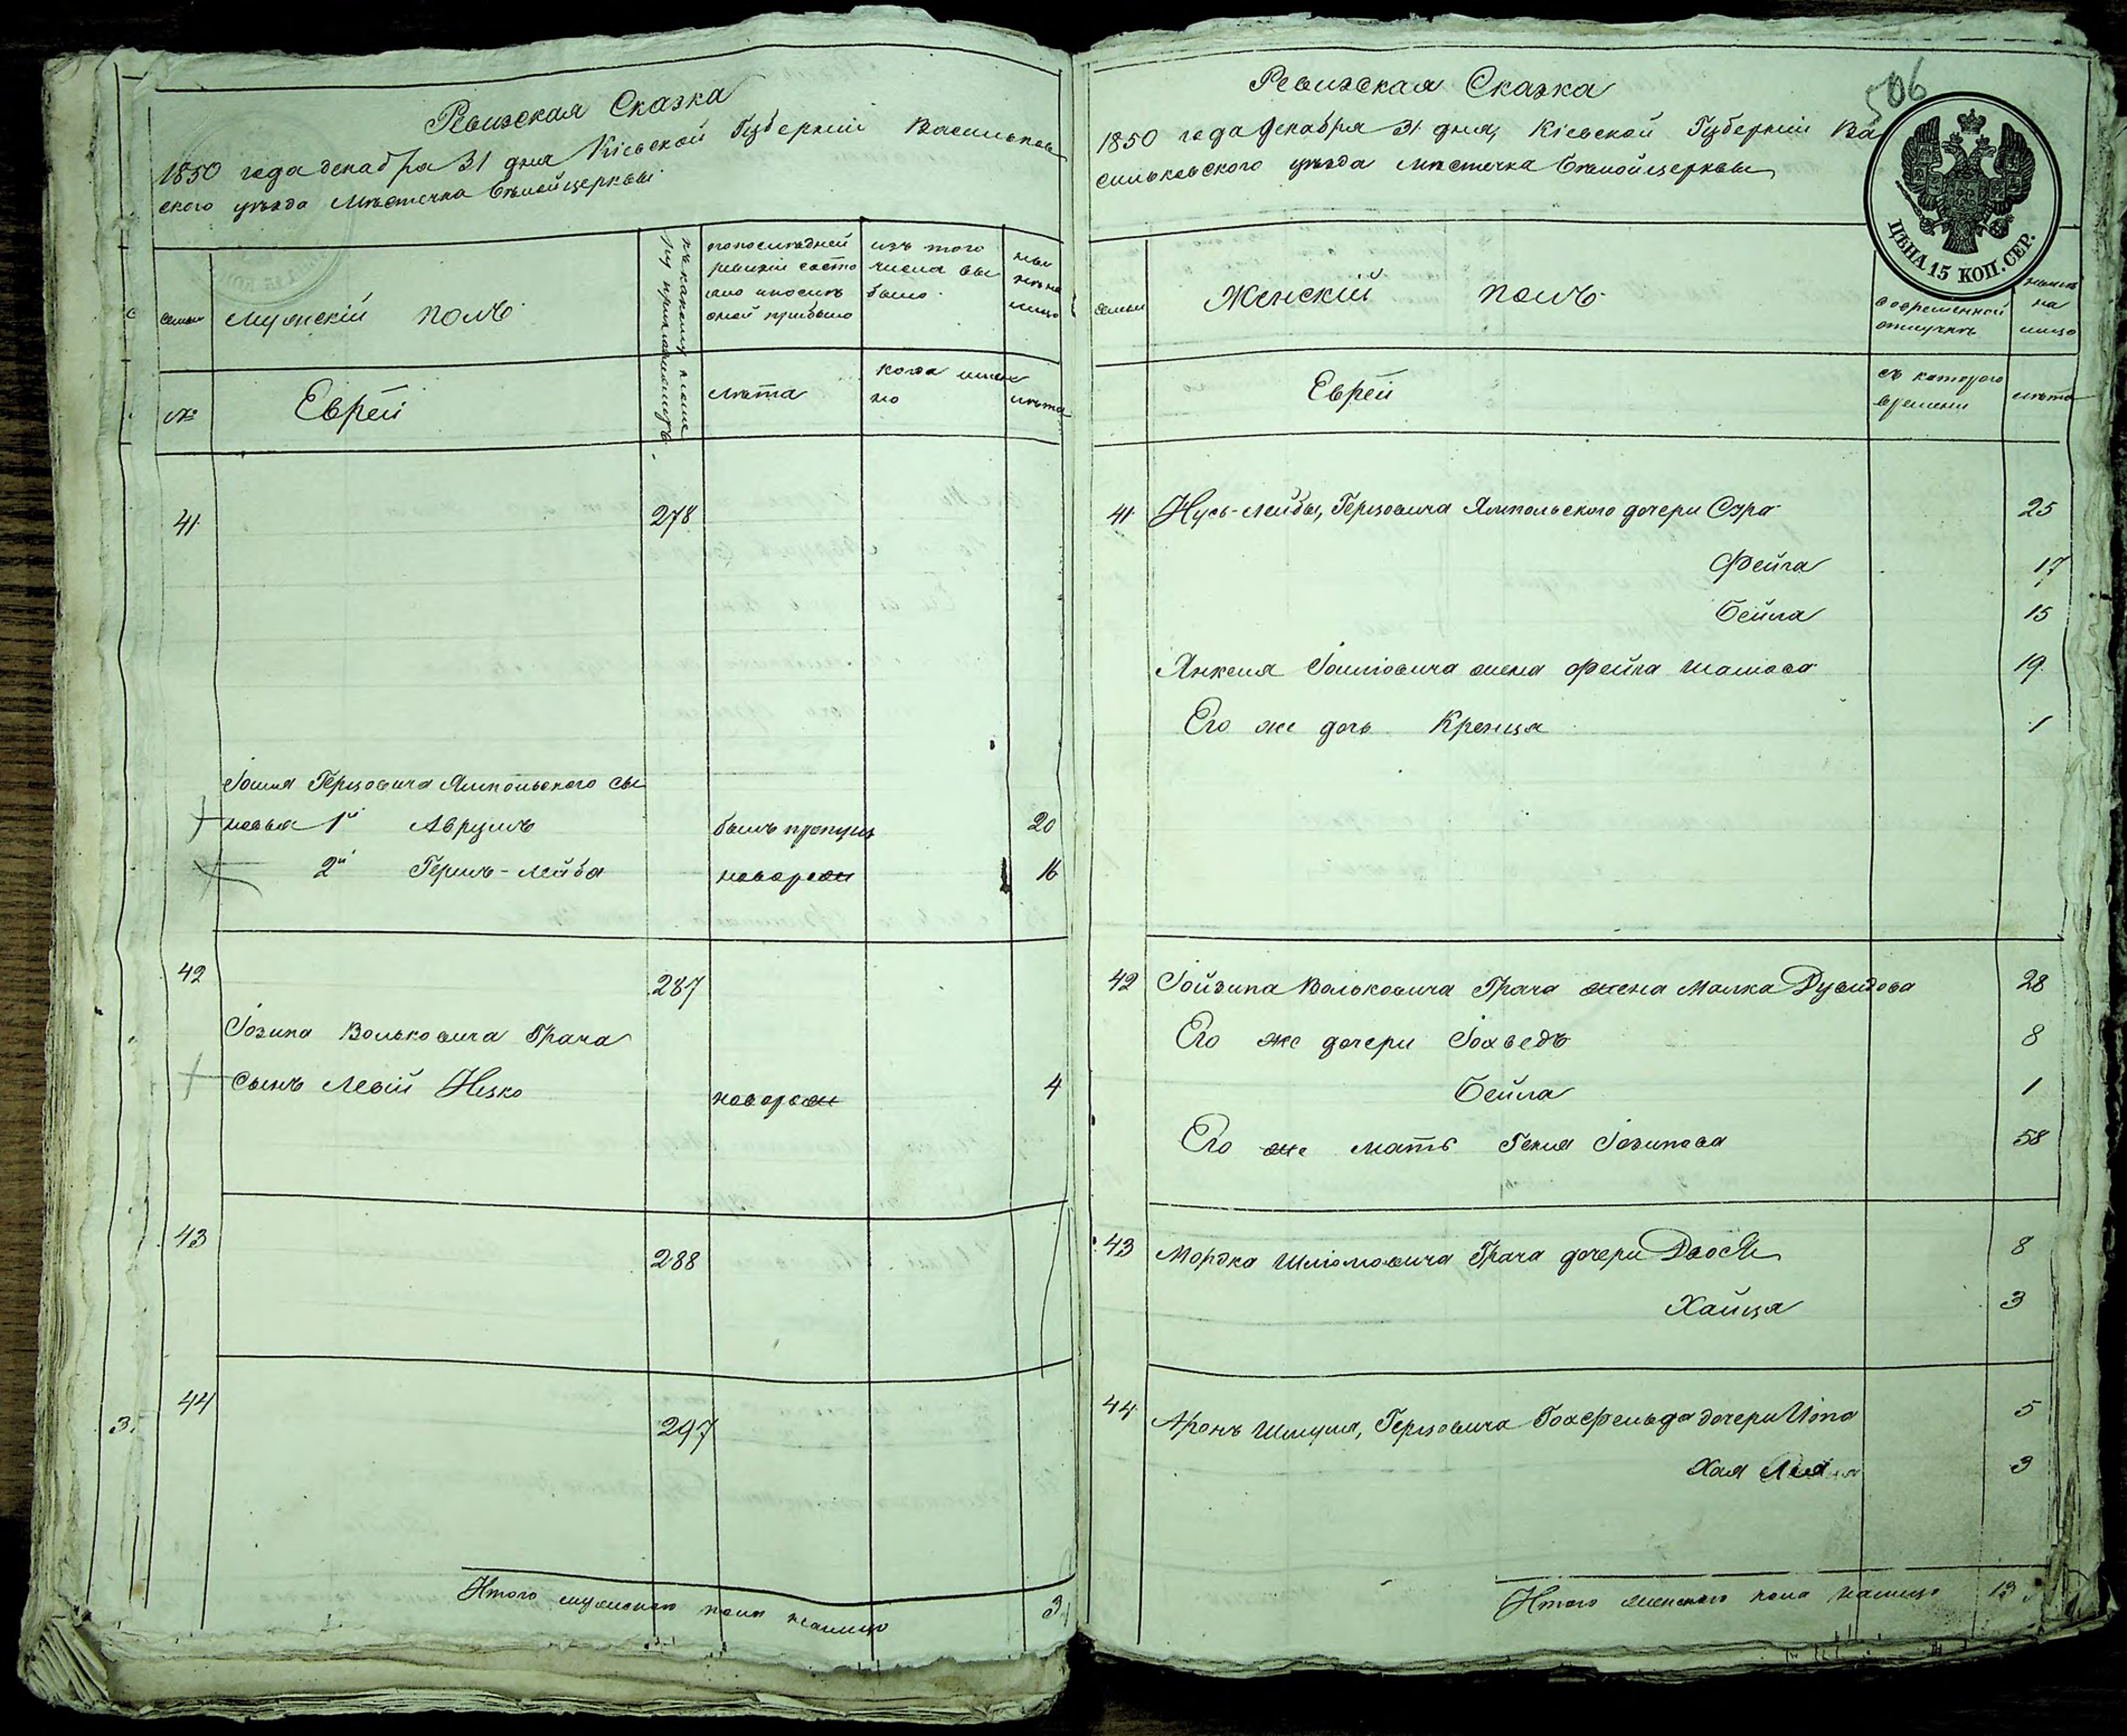 Ревизская Сказка
1850 года декабря 31 дня Кіевской Губерніи Васильков
ского уѣзда Мѣстечка Бѣлойцеркви
семьи
Мужескій полъ
по последней
ревизіи состо
яло и послѣ
оной прибыло
изъ того
числа вы
было
ны
нѣ на
лицо
№
Еврей
лѣта
когда имен
но
лѣта
41
278
Іошіа Герцовича Ямпольского сы
новья 1й Аврумъ
былъ пропущ
20
2й Гершъ-Лейба
новорож
16
42
287
Іозипа Вольковича Грача
Сынъ Левій Ицко
новорож
4
43
288
44
3.
297
Итого мужеского пола налицо
3
Ревизская Сказка
506
1850 года Декабря 31 дня, Кіевской Губерніи Ва
сильковского уѣзда мѣстечка Бѣлойцеркви
ЦѢНА 15 КОП. СЕР.
семьи
Женскій полъ
во временной
отлучкѣ
на
лицо
Еврей
съ которого
времени
лѣта
41 Нусь-Лейбы, Герцовича Ямпольского дочери Сура 25
Фейга 17
Бейла 15
Янкеля Іошіовича жена Фейга 19
Его же дочь Крейця 1
42 Іойзипа Вольковича Грача жена Малка Дувидова 28
Его же дочери Іохведъ 8
Бейла 1
Его же мать Геня Іозипова 58
43 Мордка Шліомовича Грача дочери Двося 8
Хайця 3
44 Аронъ Шмуля, Герцовича Гохфельда дочери Ита 5
Хая Лея 3
Итого женского пола налицо 13